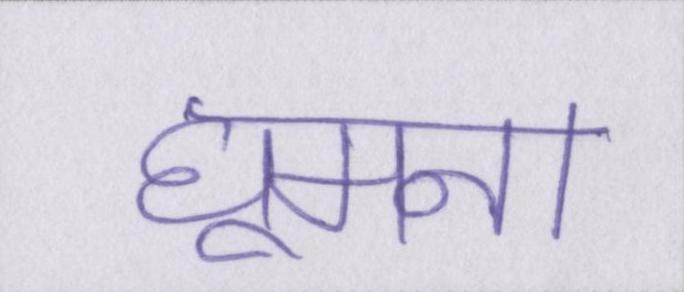 घूमना